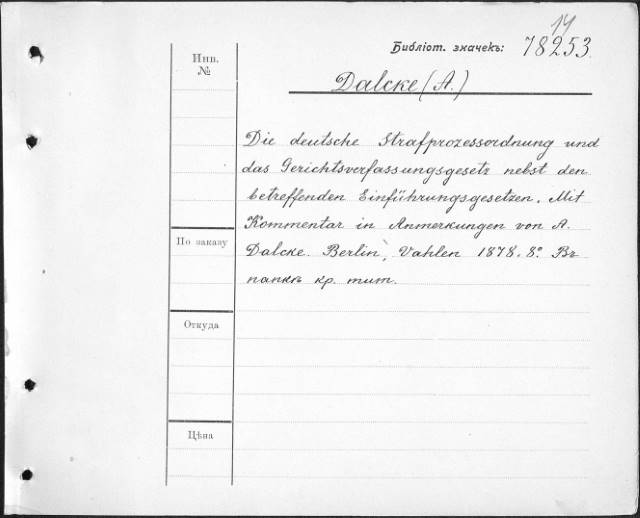 14
Библіот. значекъ: 78253.
Инв.
№
Dalcke (A.)
Die deutsche Strafprozessordnung und
das Gerichtsverfassungsgesetz nebst den
betreffenden Einführungsgesetzen. Mit
Kommentar in Anmerkungen von A.
По заказу
Dalcke. Berlin, Vahlen 1878. 8º. Въ
папкѣ кр. тит.
Откуда
Цѣна